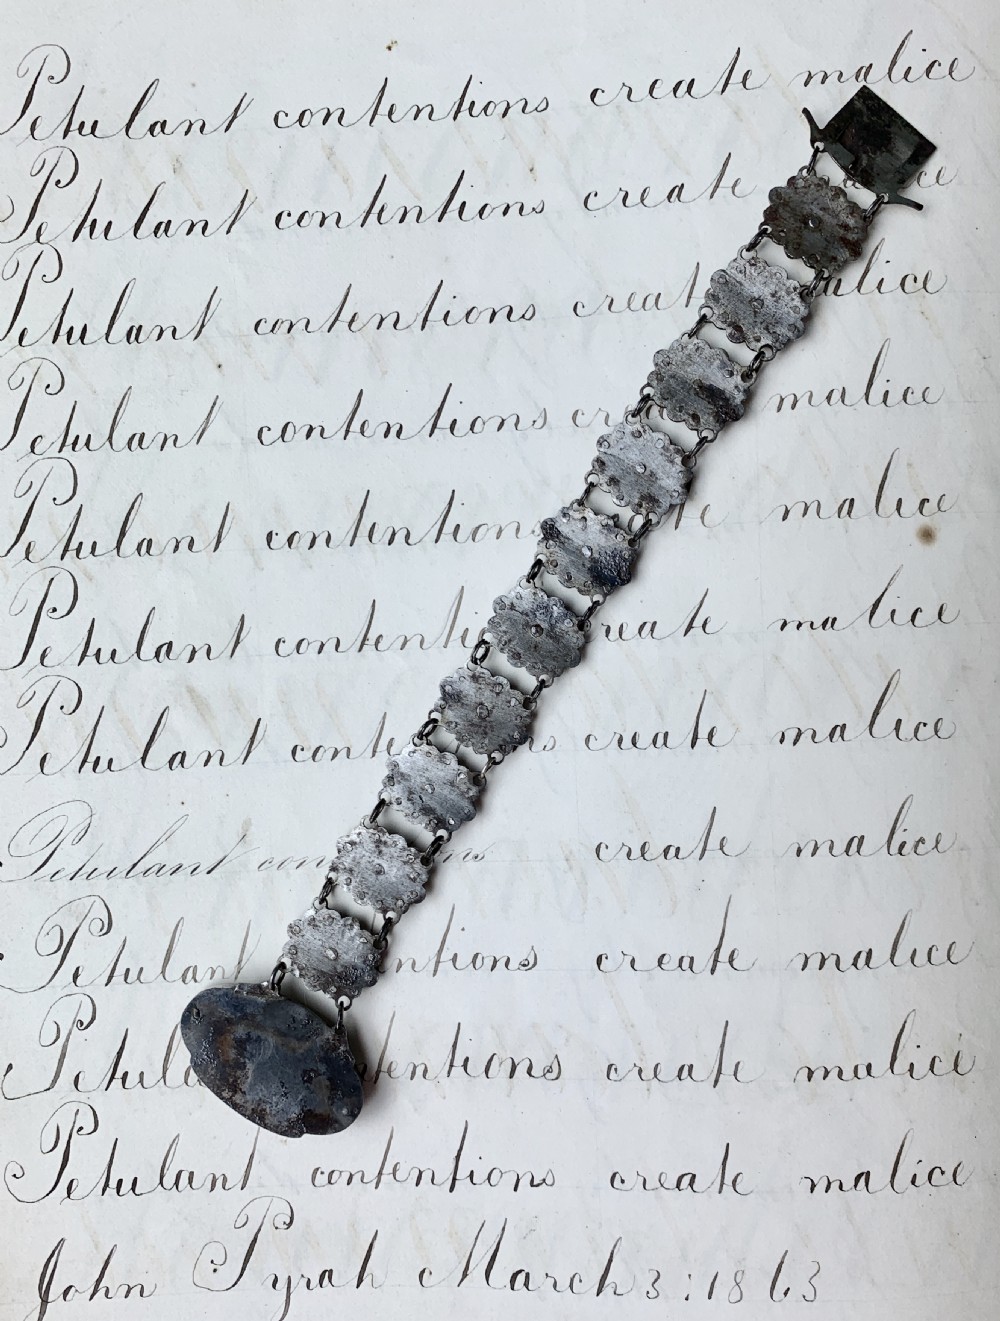 Petulant contentions create malice
Petulant contentions create ce
Petulant contentions creat alice
Petulant contentions cre malice
Petulant contention te malice
Petulant contenti reate malice
Petulant conte ns create malice
Petulant con ns create malice
Petulant ntions create malice
Petula tentions create malice
Petulant contentions create malice
John Pyrah March 3 : 1863